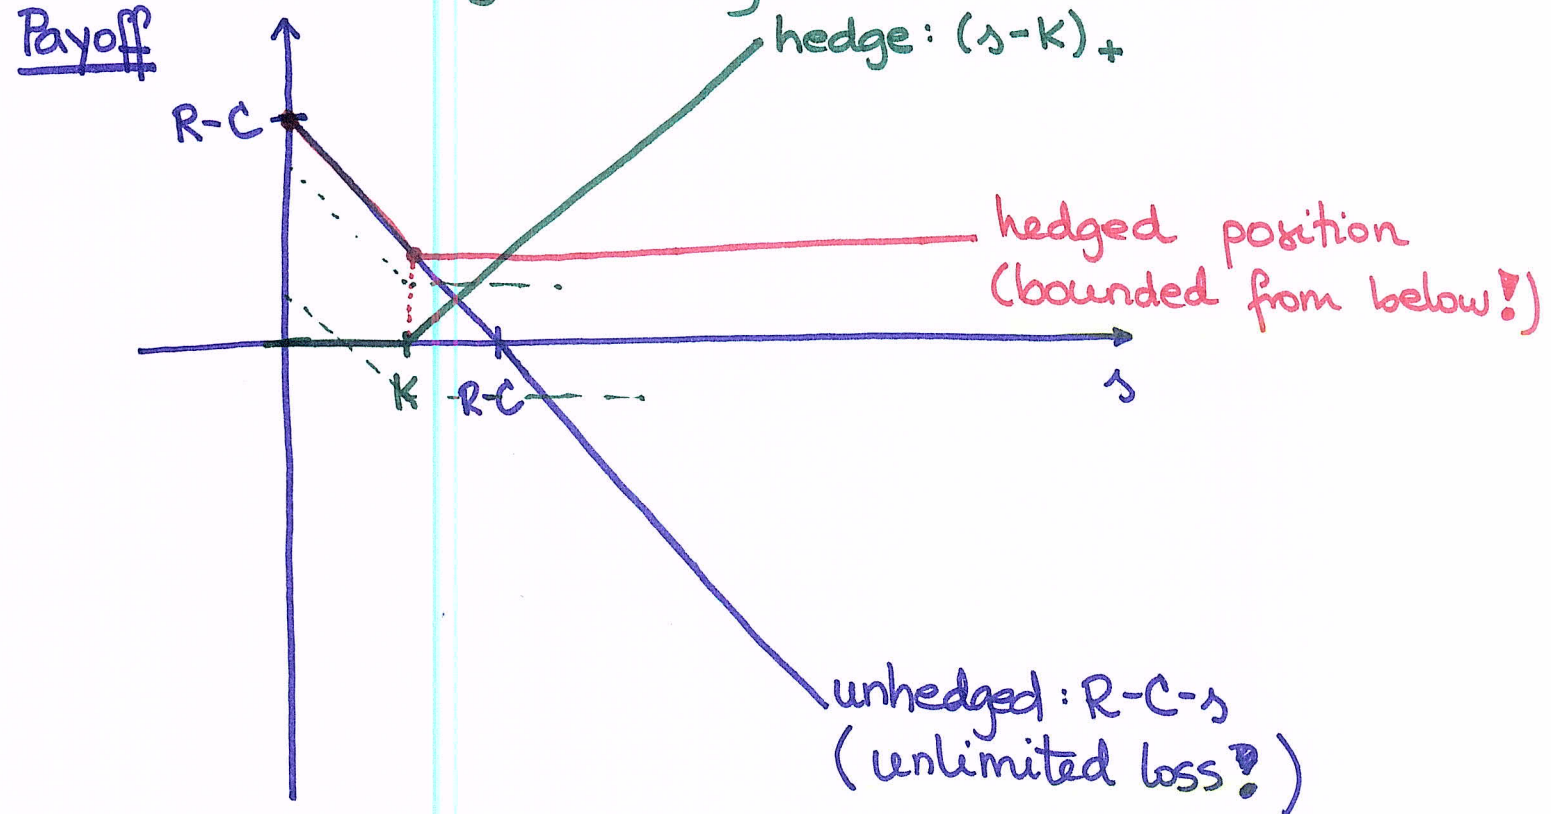 Payoff
hedge: (s-K)+
R-C
hedged position
(bounded from below!)
K
R-C
s
unhedged: R-C-s
(unlimited loss!)